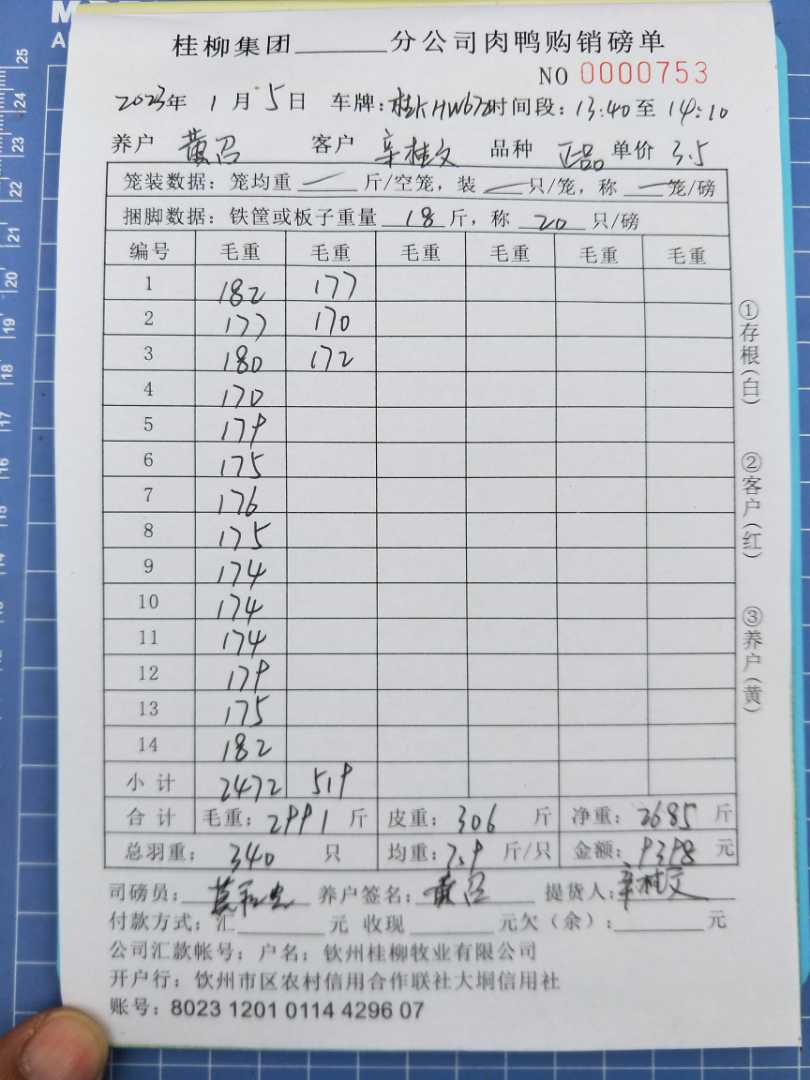 桂柳集团______分公司肉鸭购销磅单
NO 0000753
2023年 1月5日 车牌:桂KHW672时间段:13:40至14:10
养户 黄召 客户 辛桂文 品种 正品 单价 3.5
笼装数据:笼均重 — 斤/空笼,装 — 只/笼,称 — 笼/磅
捆脚数据:铁筐或板子重量 18 斤,称 20 只/磅
编号 毛重 毛重 毛重 毛重 毛重 毛重
1 182 177
2 177 170
3 180 172
4 170
5 179
6 175
7 176
8 175
9 174
10 174
11 174
12 179
13 175
14 182
小计 2472 519
合计 毛重:2991斤 皮重:306斤 净重:2685斤
总羽重:340只 均重:7.9斤/只 金额:9398元
司磅员: 养户签名:黄召 提货人:辛桂文
付款方式:汇______元 收现______元欠(余):______元
公司汇款帐号:户名:钦州桂柳牧业有限公司
开户行:钦州市区农村信用合作联社大垌信用社
账号:8023 1201 0114 4296 07
①存根(白)
②客户(红)
③养户(黄)
25
24
23
22
21
20
19
18
17
16